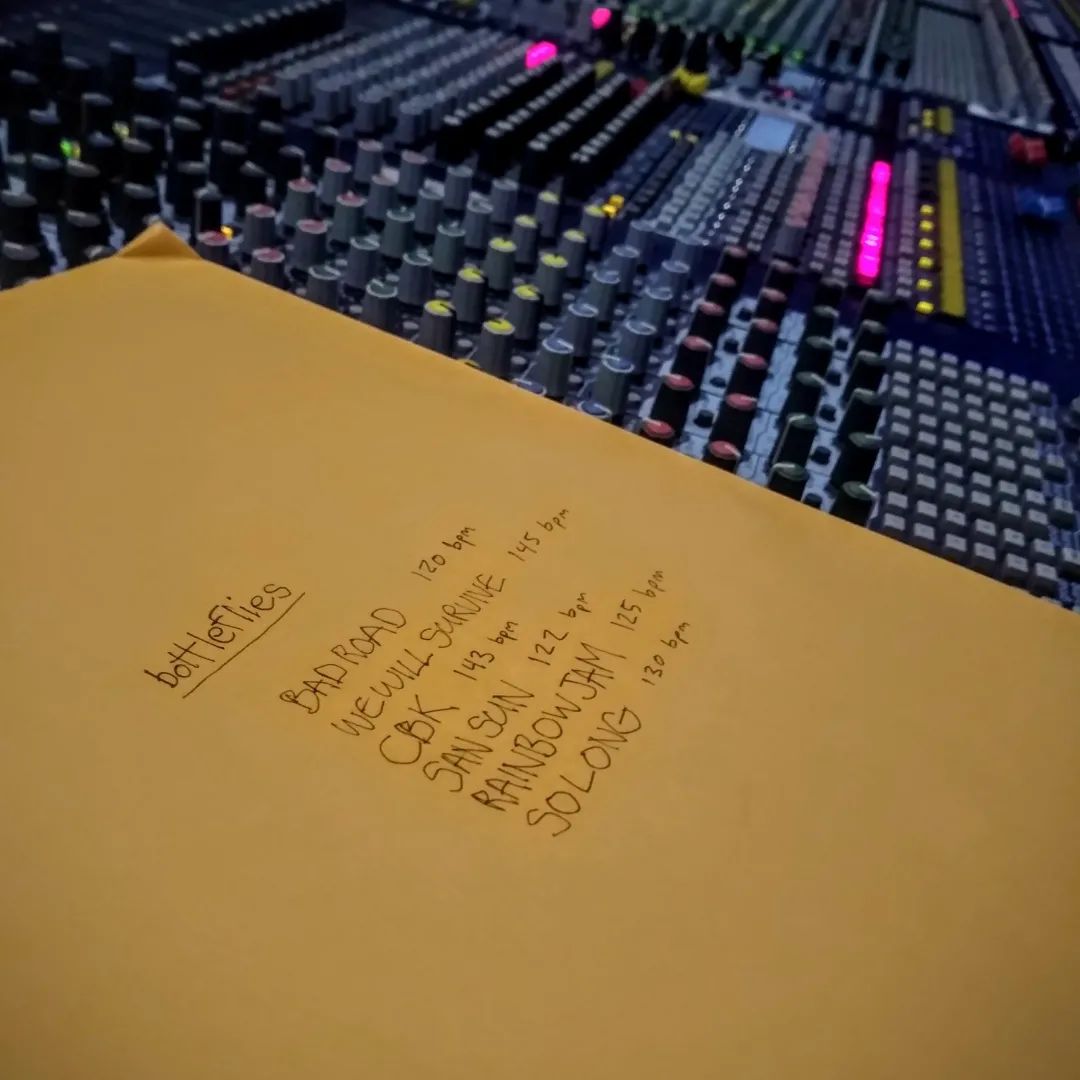 bottleflies
BAD ROAD 120 bpm
WE WILL SURVIVE 145 bpm
CBK 143 bpm
SAN SUN 122 bpm
RAINBOW JAM 125 bpm
SO LONG 130 bpm